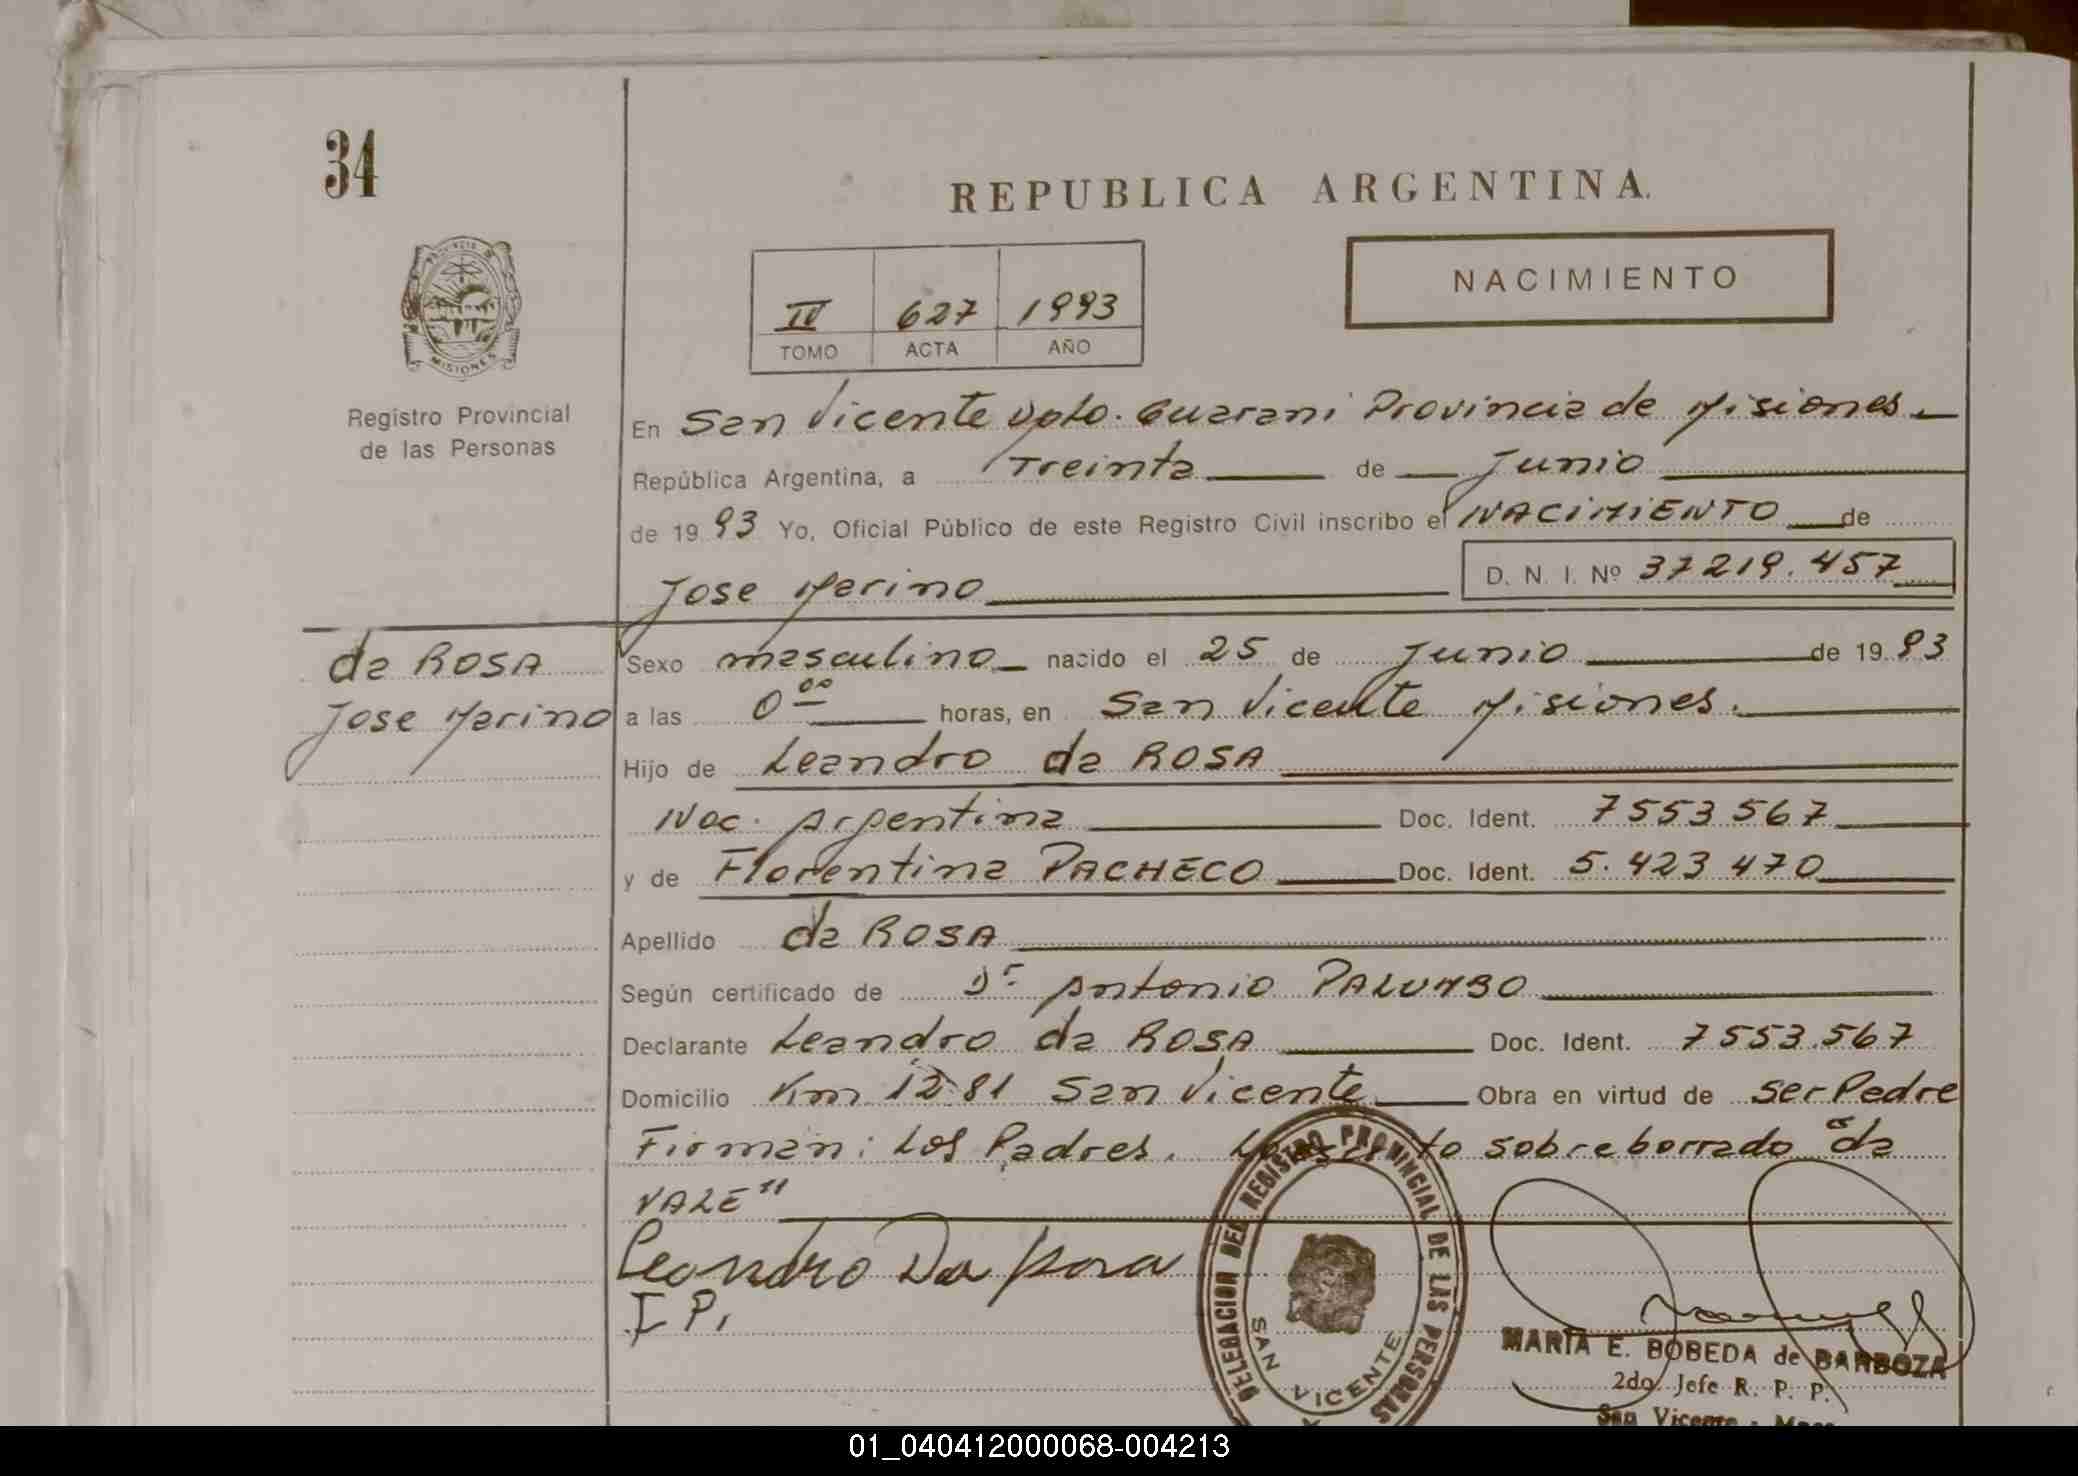 34
REPUBLICA ARGENTINA.
PROVINCIA DE MISIONES
NACIMIENTO
IV 627 1993
TOMO ACTA AÑO
Registro Provincial
de las Personas
En San Vicente Dpto. Guarani Provincia de Misiones.
República Argentina, a Treinta de Junio
de 1993 Yo, Oficial Público de este Registro Civil inscribo el NACIMIENTO de
Jose Marino D. N. I. Nº 37219.457
da ROSA
Jose Marino
Sexo masculino nacido el 25 de Junio de 1993
a las 0 00 horas, en San Vicente Misiones.
Hijo de Leandro da ROSA
Nac. Argentina Doc. Ident. 7553567
y de Florentina PACHECO Doc. Ident. 5.423470
Apellido da ROSA
Según certificado de Dr Antonio PALUMBO
Declarante Leandro da ROSA Doc. Ident. 7553.567
Domicilio Km 1281 San Vicente Obra en virtud de ser Padre
Firman: Los Padres. to sobreborrado "da
VALE"
Leandro Da Rosa
I P.
DELEGACION DEL REGISTRO PROVINCIAL DE LAS PERSONAS
SAN VICENTE
MARIA E. BOBEDA de BARBOZA
2do. Jefe R. P. P.
San Vicente
01_040412000068-004213